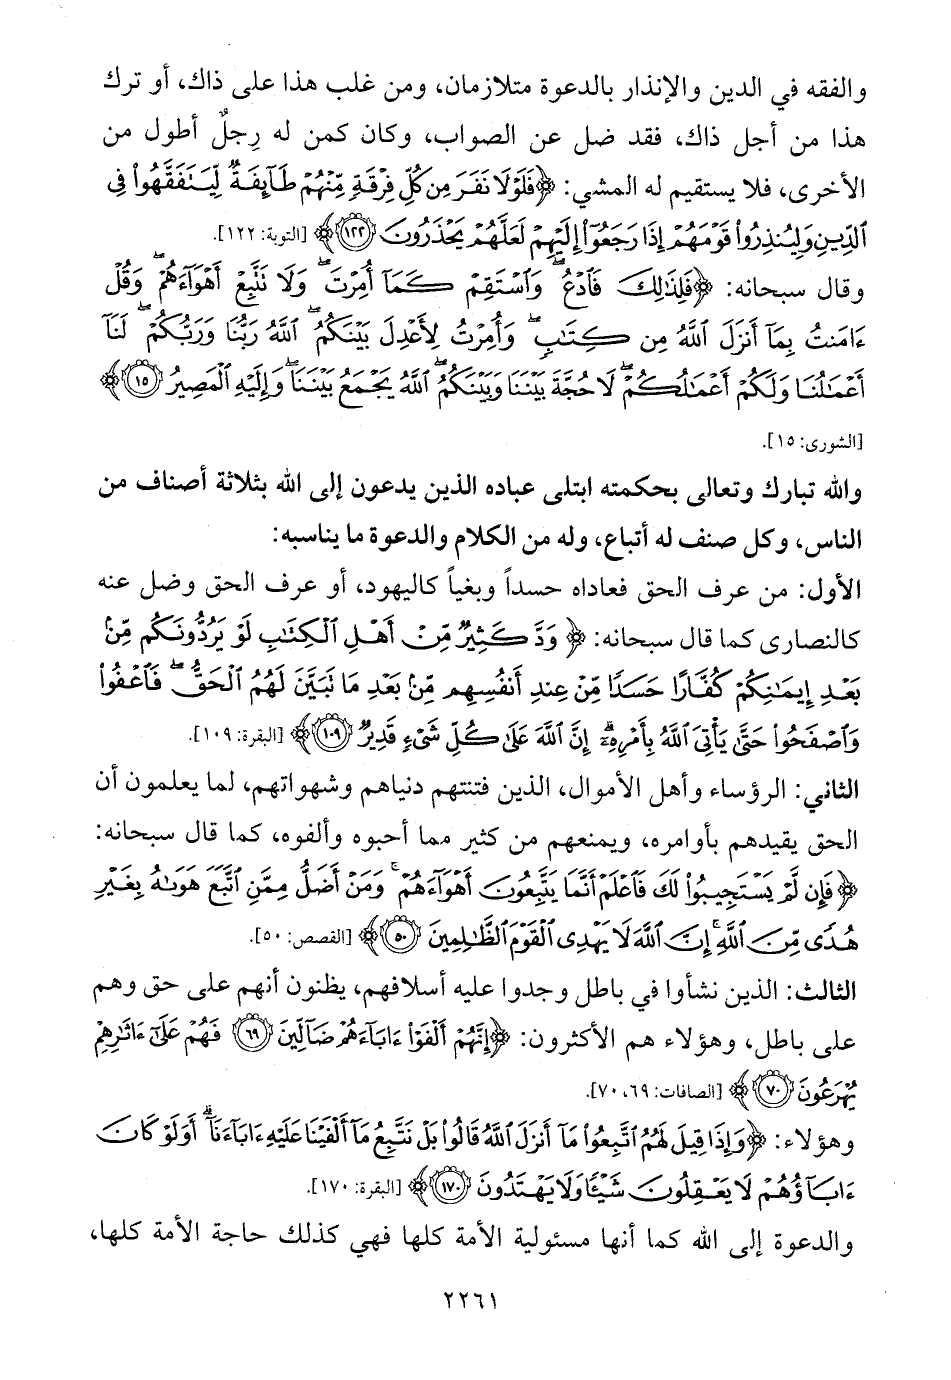 والفقه في الدين والإنذار بالدعوة متلازمان، ومن غلب هذا على ذاك، أو ترك
هذا من أجل ذاك، فقد ضل عن الصواب، وكان كمن له رِجلٌ أطول من
الأخرى، فلا يستقيم له المشي: ﴿فَلَوْلَا نَفَرَ مِن كُلِّ فِرْقَةٍ مِّنْهُمْ طَآئِفَةٌ لِّيَتَفَقَّهُوا۟ فِى
ٱلدِّينِ وَلِيُنذِرُوا۟ قَوْمَهُمْ إِذَا رَجَعُوٓا۟ إِلَيْهِمْ لَعَلَّهُمْ يَحْذَرُونَ ١٢٢﴾ [التوبة: ١٢٢].
وقال سبحانه: ﴿فَلِذَٰلِكَ فَٱدْعُ ۖ وَٱسْتَقِمْ كَمَآ أُمِرْتَ ۖ وَلَا تَتَّبِعْ أَهْوَآءَهُمْ ۖ وَقُلْ
ءَامَنتُ بِمَآ أَنزَلَ ٱللَّهُ مِن كِتَٰبٍ ۖ وَأُمِرْتُ لِأَعْدِلَ بَيْنَكُمُ ۖ ٱللَّهُ رَبُّنَا وَرَبُّكُمْ ۖ لَنَآ
أَعْمَٰلُنَا وَلَكُمْ أَعْمَٰلُكُمْ ۖ لَا حُجَّةَ بَيْنَنَا وَبَيْنَكُمُ ۖ ٱللَّهُ يَجْمَعُ بَيْنَنَا ۖ وَإِلَيْهِ ٱلْمَصِيرُ ١٥﴾
[الشورى: ١٥].
والله تبارك وتعالى بحكمته ابتلى عباده الذين يدعون إلى الله بثلاثة أصناف من
الناس، وكل صنف له أتباع، وله من الكلام والدعوة ما يناسبه:
الأول: من عرف الحق فعاداه حسداً وبغياً كاليهود، أو عرف الحق وضل عنه
كالنصارى كما قال سبحانه: ﴿وَدَّ كَثِيرٌ مِّنْ أَهْلِ ٱلْكِتَٰبِ لَوْ يَرُدُّونَكُم مِّنۢ
بَعْدِ إِيمَٰنِكُمْ كُفَّارًا حَسَدًا مِّنْ عِندِ أَنفُسِهِم مِّنۢ بَعْدِ مَا تَبَيَّنَ لَهُمُ ٱلْحَقُّ ۖ فَٱعْفُوا۟
وَٱصْفَحُوا۟ حَتَّىٰ يَأْتِىَ ٱللَّهُ بِأَمْرِهِۦٓ ۗ إِنَّ ٱللَّهَ عَلَىٰ كُلِّ شَىْءٍ قَدِيرٌ ١٠٩﴾ [البقرة: ١٠٩].
الثاني: الرؤساء وأهل الأموال، الذين فتنتهم دنياهم وشهواتهم، لما يعلمون أن
الحق يقيدهم بأوامره، ويمنعهم من كثير مما أحبوه وألفوه، كما قال سبحانه:
﴿فَإِن لَّمْ يَسْتَجِيبُوا۟ لَكَ فَٱعْلَمْ أَنَّمَا يَتَّبِعُونَ أَهْوَآءَهُمْ ۚ وَمَنْ أَضَلُّ مِمَّنِ ٱتَّبَعَ هَوَىٰهُ بِغَيْرِ
هُدًى مِّنَ ٱللَّهِ ۚ إِنَّ ٱللَّهَ لَا يَهْدِى ٱلْقَوْمَ ٱلظَّٰلِمِينَ ٥٠﴾ [القصص: ٥٠].
الثالث: الذين نشأوا في باطل وجدوا عليه أسلافهم، يظنون أنهم على حق وهم
على باطل، وهؤلاء هم الأكثرون: ﴿إِنَّهُمْ أَلْفَوْا۟ ءَابَآءَهُمْ ضَآلِّينَ ٦٩ فَهُمْ عَلَىٰٓ ءَاثَٰرِهِمْ
يُهْرَعُونَ ٧٠﴾ [الصافات: ٦٩، ٧٠].
وهؤلاء: ﴿وَإِذَا قِيلَ لَهُمُ ٱتَّبِعُوا۟ مَآ أَنزَلَ ٱللَّهُ قَالُوا۟ بَلْ نَتَّبِعُ مَآ أَلْفَيْنَا عَلَيْهِ ءَابَآءَنَآ ۗ أَوَلَوْ كَانَ
ءَابَآؤُهُمْ لَا يَعْقِلُونَ شَيْـًٔا وَلَا يَهْتَدُونَ ١٧٠﴾ [البقرة: ١٧٠].
والدعوة إلى الله كما أنها مسئولية الأمة كلها فهي كذلك حاجة الأمة كلها،
٢٢٦١